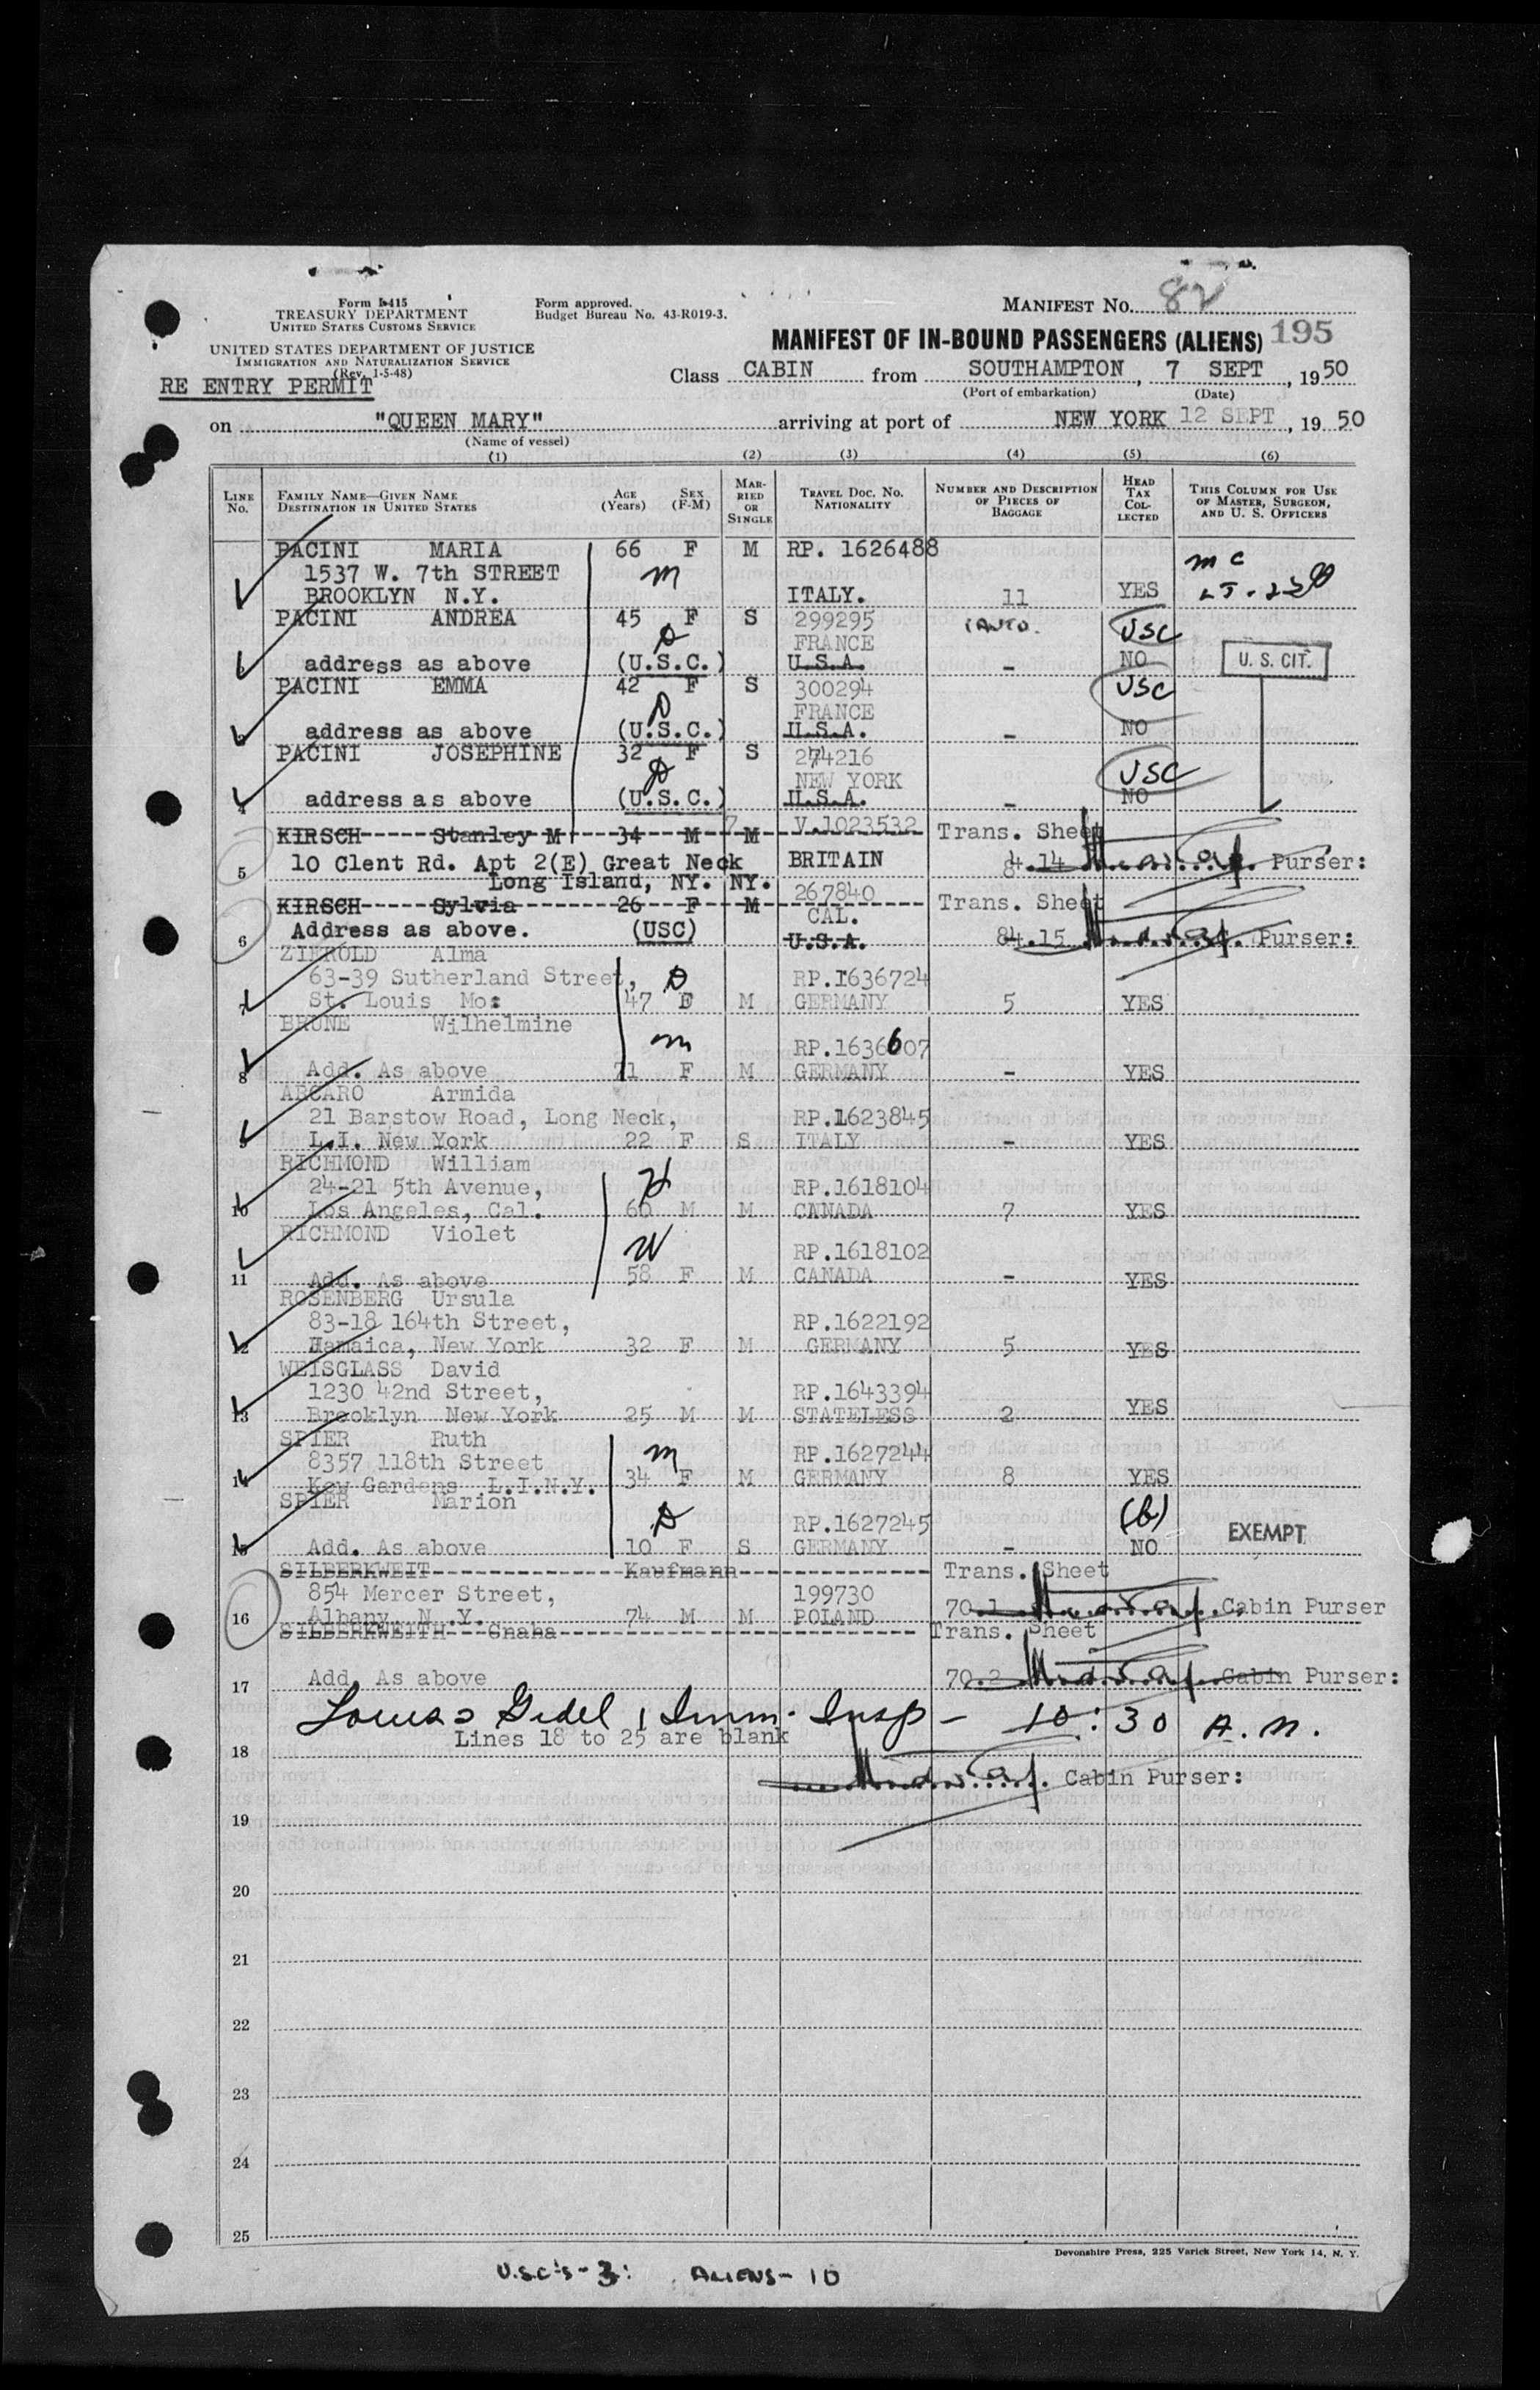 Form I-415
TREASURY DEPARTMENT
UNITED STATES CUSTOMS SERVICE
Form approved.
Budget Bureau No. 43-R019-3.
MANIFEST No. 82
UNITED STATES DEPARTMENT OF JUSTICE
IMMIGRATION AND NATURALIZATION SERVICE
(Rev. 1-5-48)
RE ENTRY PERMIT
MANIFEST OF IN-BOUND PASSENGERS (ALIENS) 195
Class CABIN from SOUTHAMPTON, 7 SEPT, 1950
(Port of embarkation) (Date)
on "QUEEN MARY" arriving at port of NEW YORK 12 SEPT, 1950
(Name of vessel)
(1) (2) (3) (4) (5) (6)
LINE No. FAMILY NAME—GIVEN NAME DESTINATION IN UNITED STATES AGE (Years) SEX (F-M) MARRIED OR SINGLE TRAVEL DOC. NO. NATIONALITY NUMBER AND DESCRIPTION OF PIECES OF BAGGAGE HEAD TAX COLLECTED THIS COLUMN FOR USE OF MASTER, SURGEON, AND U. S. OFFICERS
PACINI MARIA 66 F M RP. 1626488
1537 W. 7th STREET m mc
BROOKLYN N.Y. ITALY. 11 YES
PACINI ANDREA 45 F S 299295 USC
D FRANCE
address as above (U.S.C.) U.S.A. - NO U. S. CIT.
PACINI EMMA 42 F S 300294 USC
D FRANCE
3 address as above (U.S.C.) U.S.A. - NO
PACINI JOSEPHINE 32 F S 274216
D NEW YORK USC
4 address as above (U.S.C.) U.S.A. - NO
KIRSCH Stanley M 34 M M V.1023532 Trans. Sheet
5 10 Clent Rd. Apt 2(E) Great Neck BRITAIN 84.14 Purser:
Long Island, NY. NY.
KIRSCH Sylvia 26 F M 267840 Trans. Sheet
CAL.
6 Address as above. (USC) U.S.A. 84.15 Purser:
ZIEROLD Alma
63-39 Sutherland Street, D RP.1636724
7 St. Louis Mo: 47 F M GERMANY 5 YES
BRUNE Wilhelmine
m RP.1636607
8 Add. As above 71 F M GERMANY - YES
ARCARO Armida
21 Barstow Road, Long Neck, RP.1623845
9 L.I. New York 22 F S ITALY - YES
RICHMOND William
24-21 5th Avenue, H RP.1618104
10 Los Angeles, Cal. 60 M M CANADA 7 YES
RICHMOND Violet
W RP.1618102
11 Add. As above 58 F M CANADA - YES
ROSENBERG Ursula
83-18 164th Street, RP.1622192
12 Jamaica, New York 32 F M GERMANY 5 YES
WEISGLASS David
1230 42nd Street, RP.1643394
13 Brooklyn New York 25 M M STATELESS 2 YES
SPIER Ruth
8357 118th Street m RP.1627244
14 Kew Gardens L.I.N.Y. 34 F M GERMANY 8 YES
SPIER Marion
D RP.1627245 (b) EXEMPT
15 Add. As above 10 F S GERMANY - NO
SILBERKWEIT Kaufmann Trans. Sheet
854 Mercer Street, 199730
16 Albany N.Y. 74 M M POLAND 70.1 Cabin Purser
SILBERKWEITH Chaba Trans. Sheet
17 Add. As above 70.2 Cabin Purser:
Louis Gidel, Imm. Insp - 10:30 A.M.
18 Lines 18 to 25 are blank
Cabin Purser:
19
20
21
22
23
24
25
Devonshire Press, 225 Varick Street, New York 14, N. Y.
U.S.C's - 3: ALIENS - 10